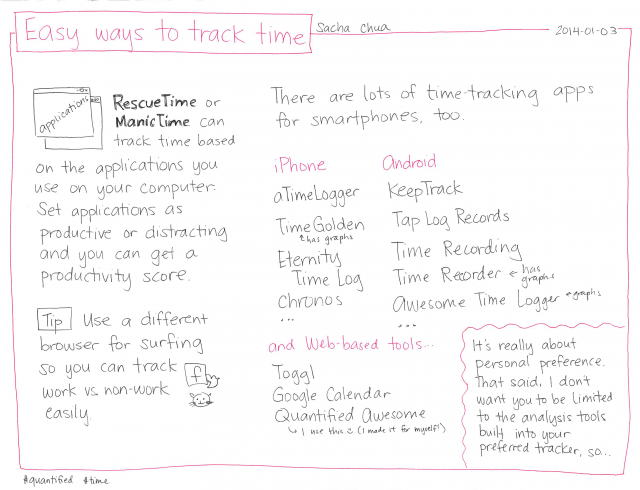 Easy ways to track time
Sacha Chua
2014-01-03
applications
RescueTime or
ManicTime can
track time based
on the applications you
use on your computer.
Set applications as
productive or distracting
and you can get a
productivity score.
Tip Use a different
browser for surfing
so you can track
work vs. non-work
easily.
f
There are lots of time-tracking apps
for smartphones, too.
iPhone
aTimeLogger
TimeGolden
has graphs
Eternity
Time Log
Chronos
...
Android
KeepTrack
Tap Log Records
Time Recording
Time Recorder ← has
graphs
Awesome Time Logger ← graphs
...
and Web-based tools...
Toggl
Google Calendar
Quantified Awesome
I use this (I made it for myself!)
It's really about
personal preference.
That said, I don't
want you to be limited
to the analysis tools
built into your
preferred tracker, so...
#quantified #time